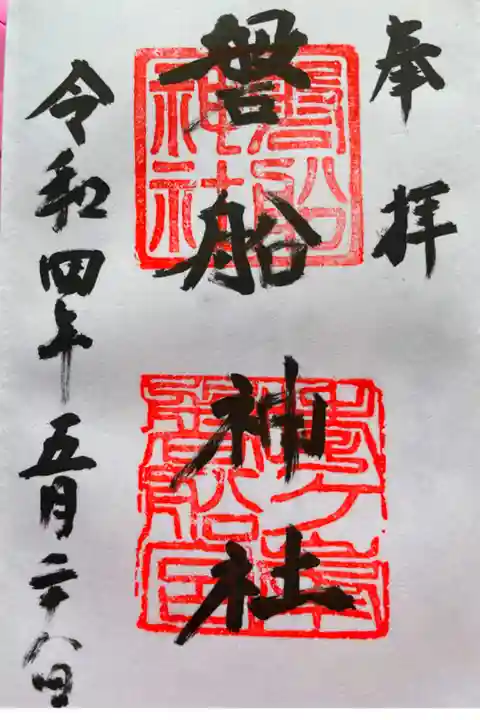 奉拝
磐船神社
令和四年五月二十八日
磐船神社